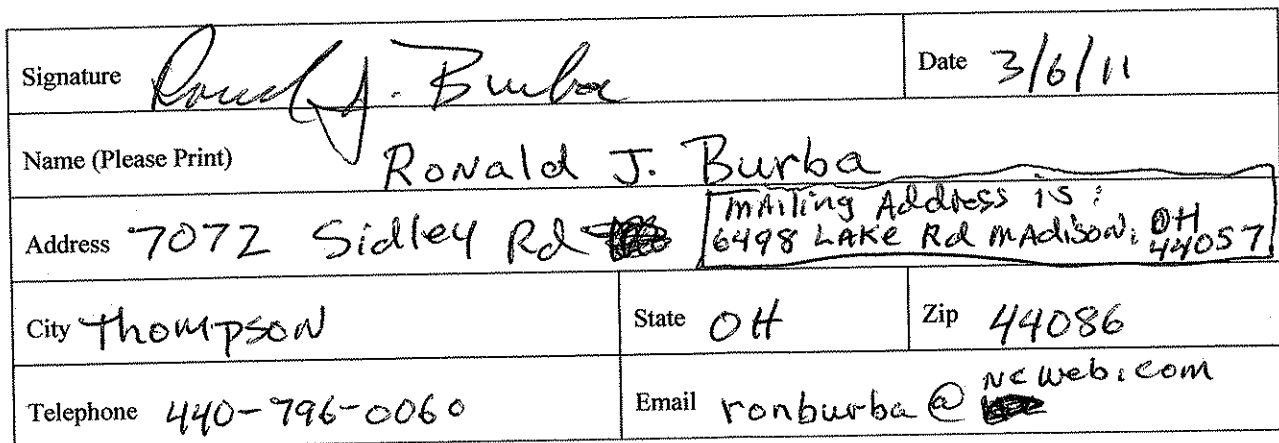 Signature Ronald J. Burba Date 3/6/11
Name (Please Print) Ronald J. Burba
Address 7072 Sidley Rd
Mailing Address is:
6498 Lake Rd Madison, OH
44057
City Thompson State OH Zip 44086
Telephone 440-796-0060 Email ronburba@ncweb.com